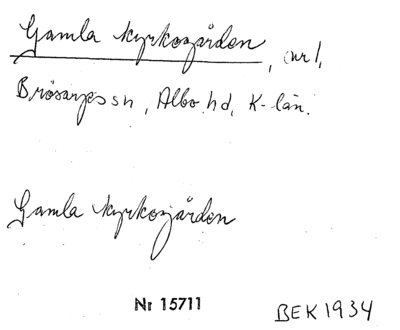 Gamla kyrkogården, nr 1,
Brösarps sn, Albo hd, K-län.
Gamla kyrkogården
Nr 15711
BEK 1934